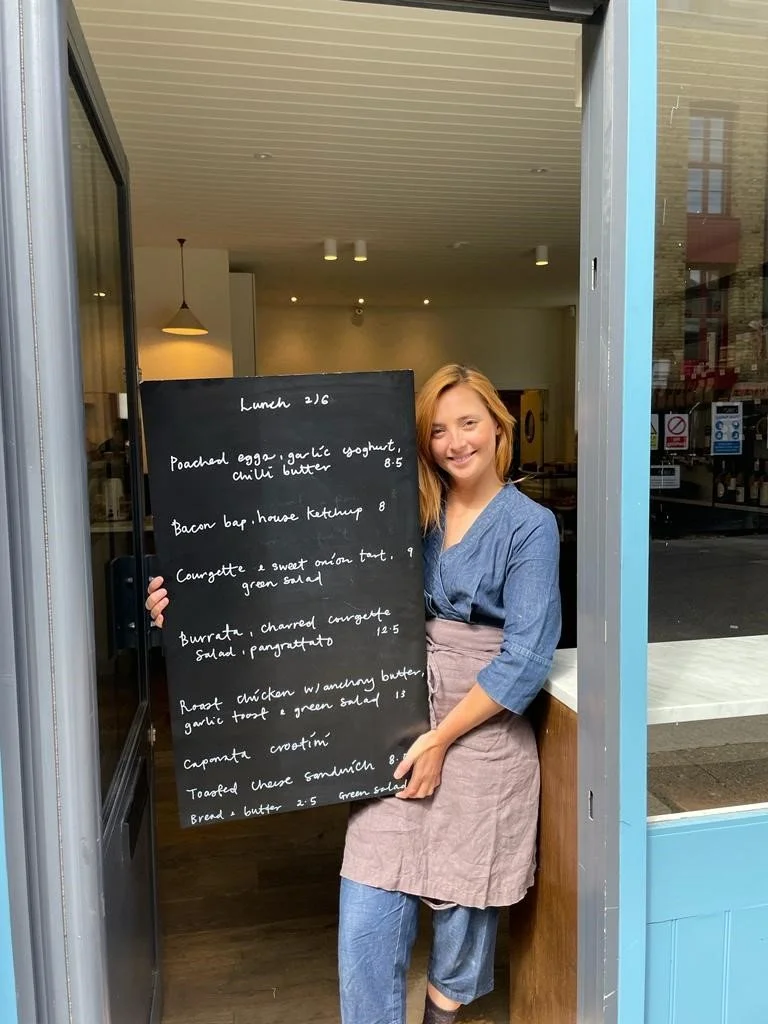 Lunch 2/6
Poached eggs, garlic yoghurt,
chilli butter 8.5
Bacon bap, house ketchup 8
Courgette & sweet onion tart, 9
green salad
Burrata, charred courgette
salad, pangrattato 12.5
Roast chicken w/ anchovy butter,
garlic toast & green salad 13
Caponata crostini
Toasted cheese sandwich 8.
Bread & butter 2.5 Green salad